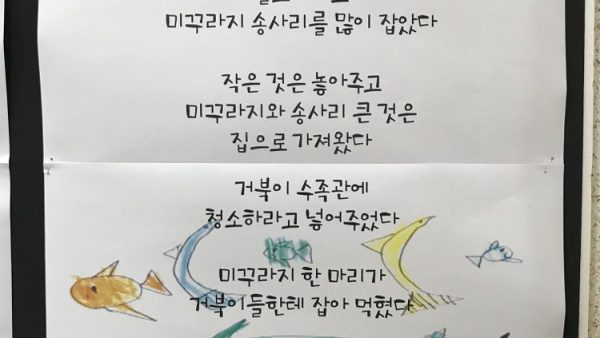 미꾸라지 송사리를 많이 잡았다
작은 것은 놓아주고
미꾸라지와 송사리 큰 것은
집으로 가져왔다
거북이 수족관에
청소하라고 넣어주었다
미꾸라지 한 마리가
거북이들한테 잡아 먹혔다